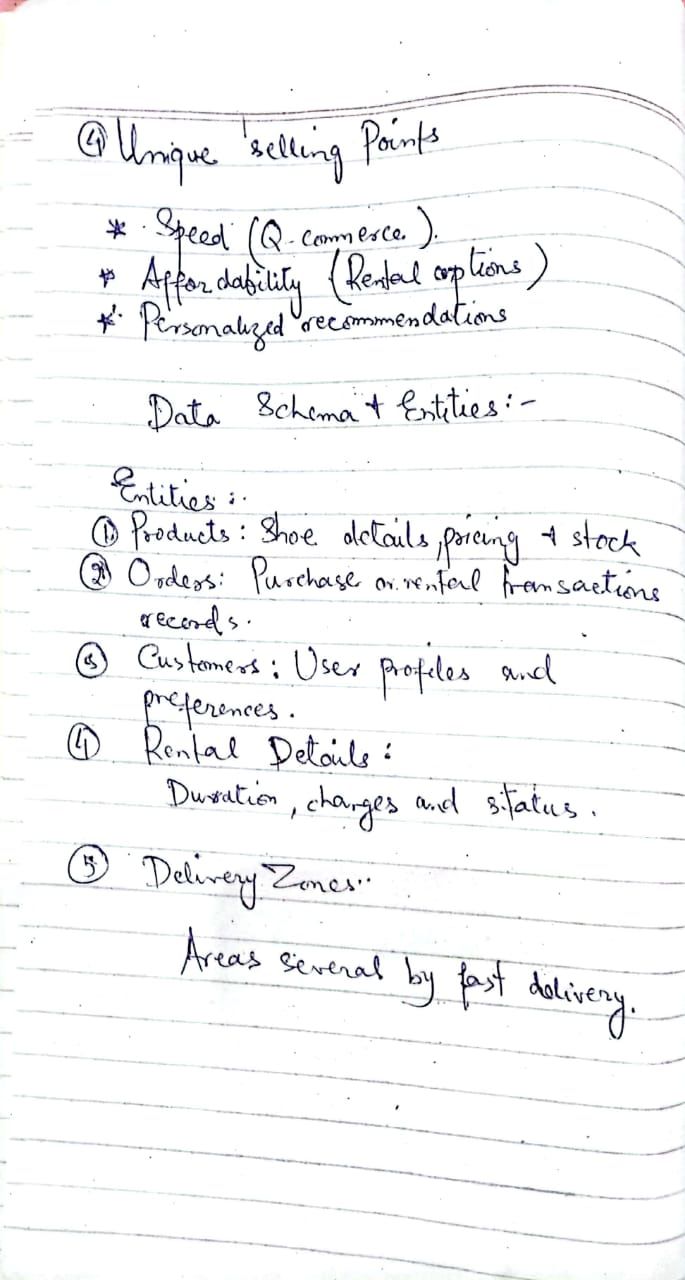 ④ Unique selling Points
* Speed (Q-commerce).
* Affordability (Rental options)
* Personalized recommendations
Data Schema & Entities :-
Entities :-
① Products : Shoe details, pricing & stock
② Orders : Purchase or rental transactions
records.
③ Customers : User profiles and
preferences.
④ Rental Details :
Duration, charges and status.
⑤ Delivery Zones :-
Areas several by fast delivery.